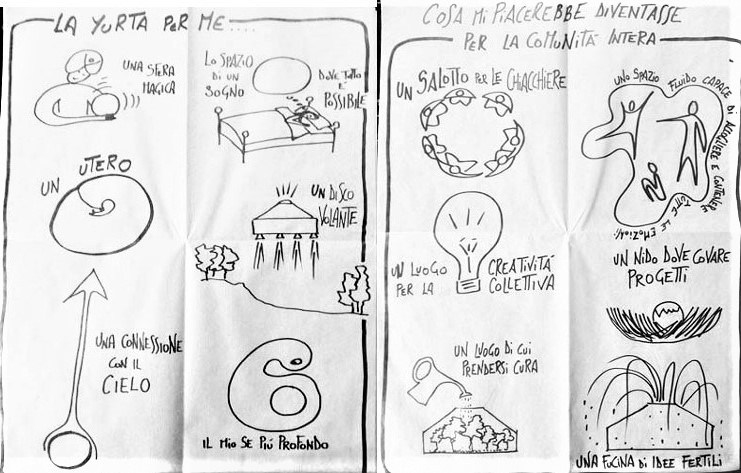 LA YURTA PER ME....
UNA SFERA
MAGICA
LO SPAZIO
DI UN
SOGNO
DOVE TUTTO
È
POSSIBILE
UN UTERO
UN DISCO
VOLANTE
UNA CONNESSIONE
CON IL
CIELO
IL MIO SE PIÙ PROFONDO
COSA MI PIACEREBBE DIVENTASSE
PER LA COMUNITÀ INTERA
UN SALOTTO PER LE CHIACCHIERE
UNO SPAZIO FLUIDO CAPACE DI ACCOGLIERE E CONTENERE TUTTE LE EMOZIONI
UN LUOGO
PER LA
CREATIVITÀ
COLLETTIVA
UN NIDO DOVE COVARE
PROGETTI
UN LUOGO DI CUI
PRENDERSI CURA
UNA FUCINA DI IDEE FERTILI